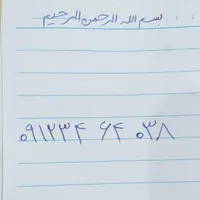 بسم الله الرحمن الرحیم
۰۹۱۲۳۴ ۶۴ ۰۳۸